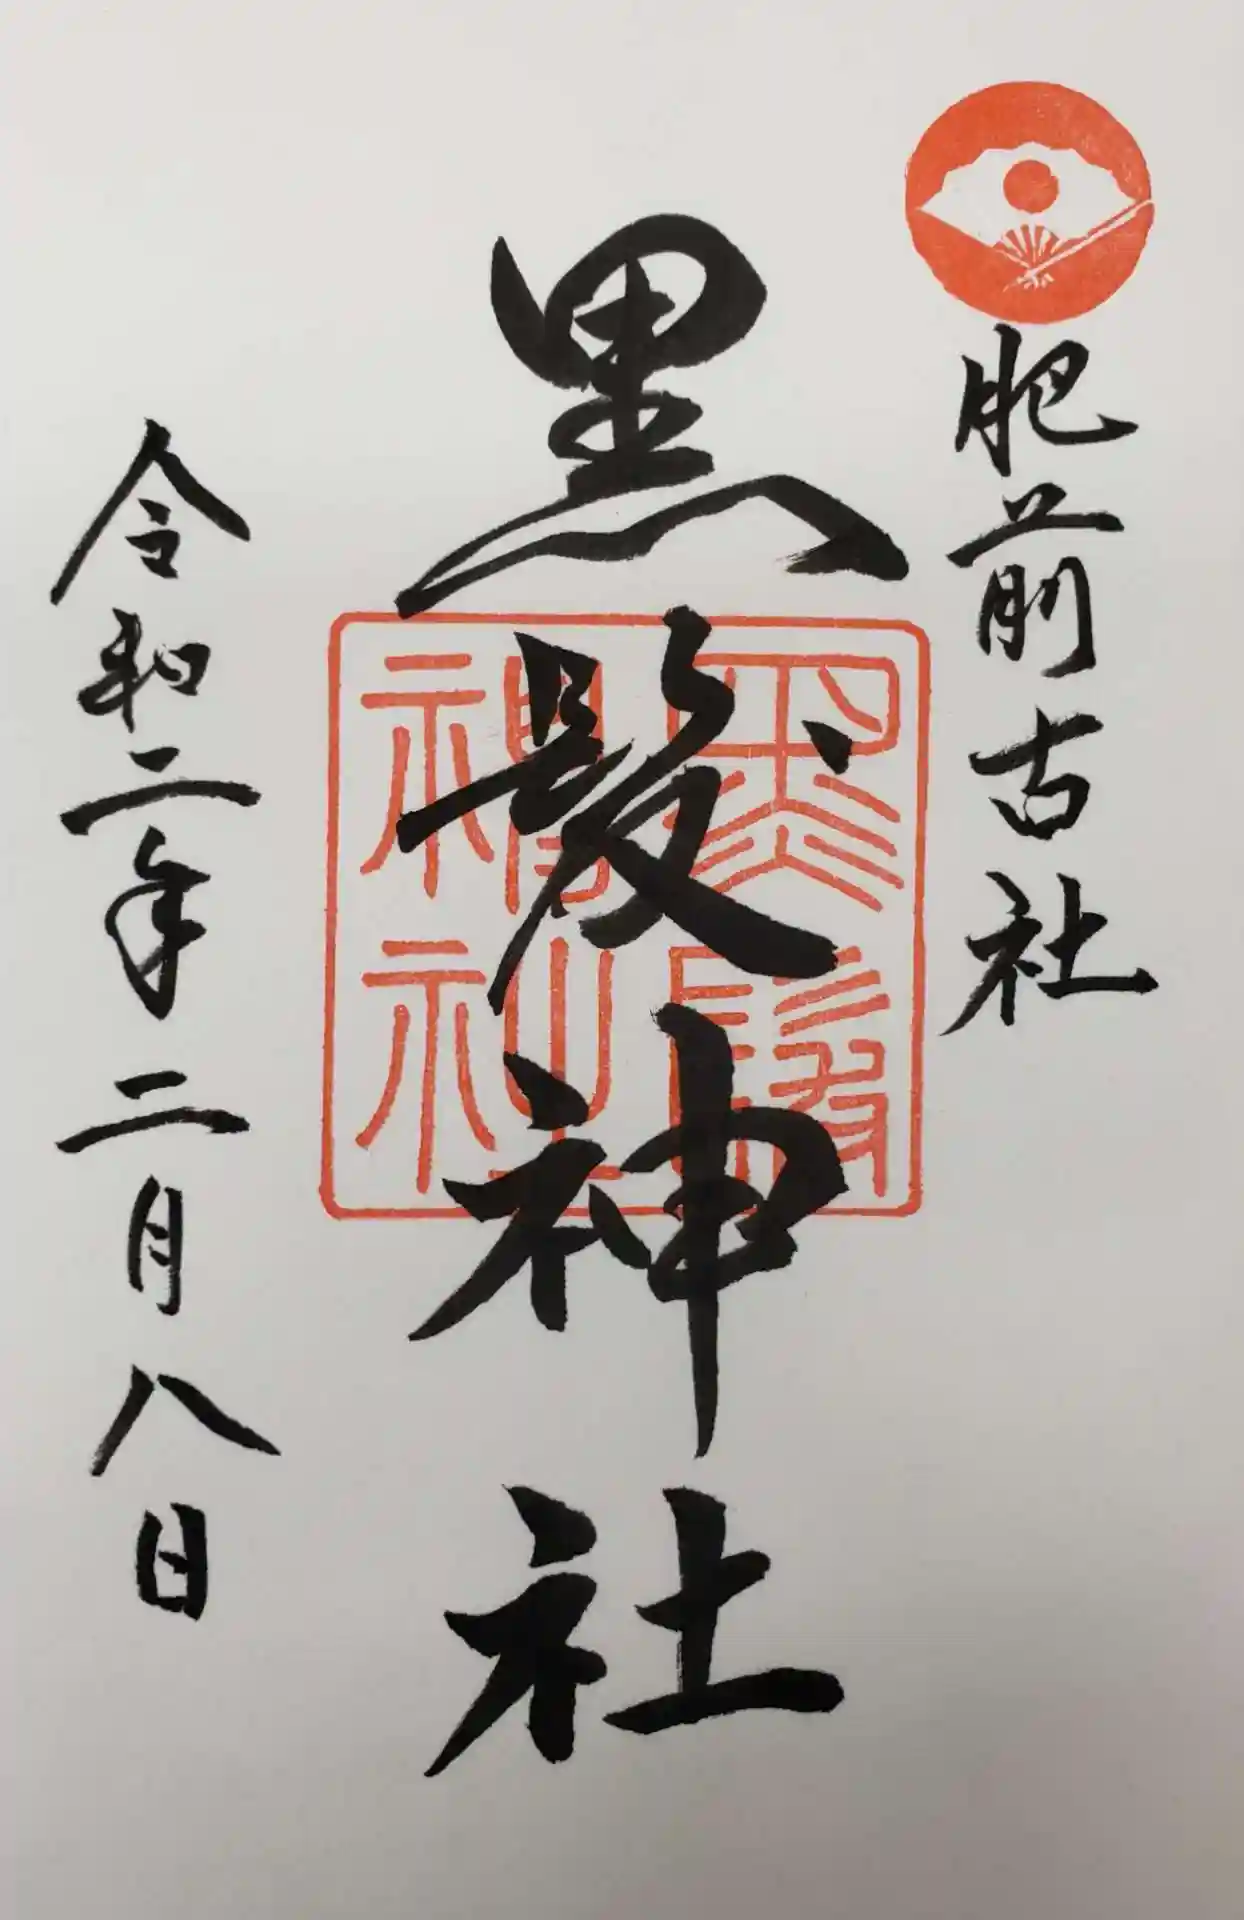 肥前古社
黒髪神社
黒髪
神社
令和二年二月八日